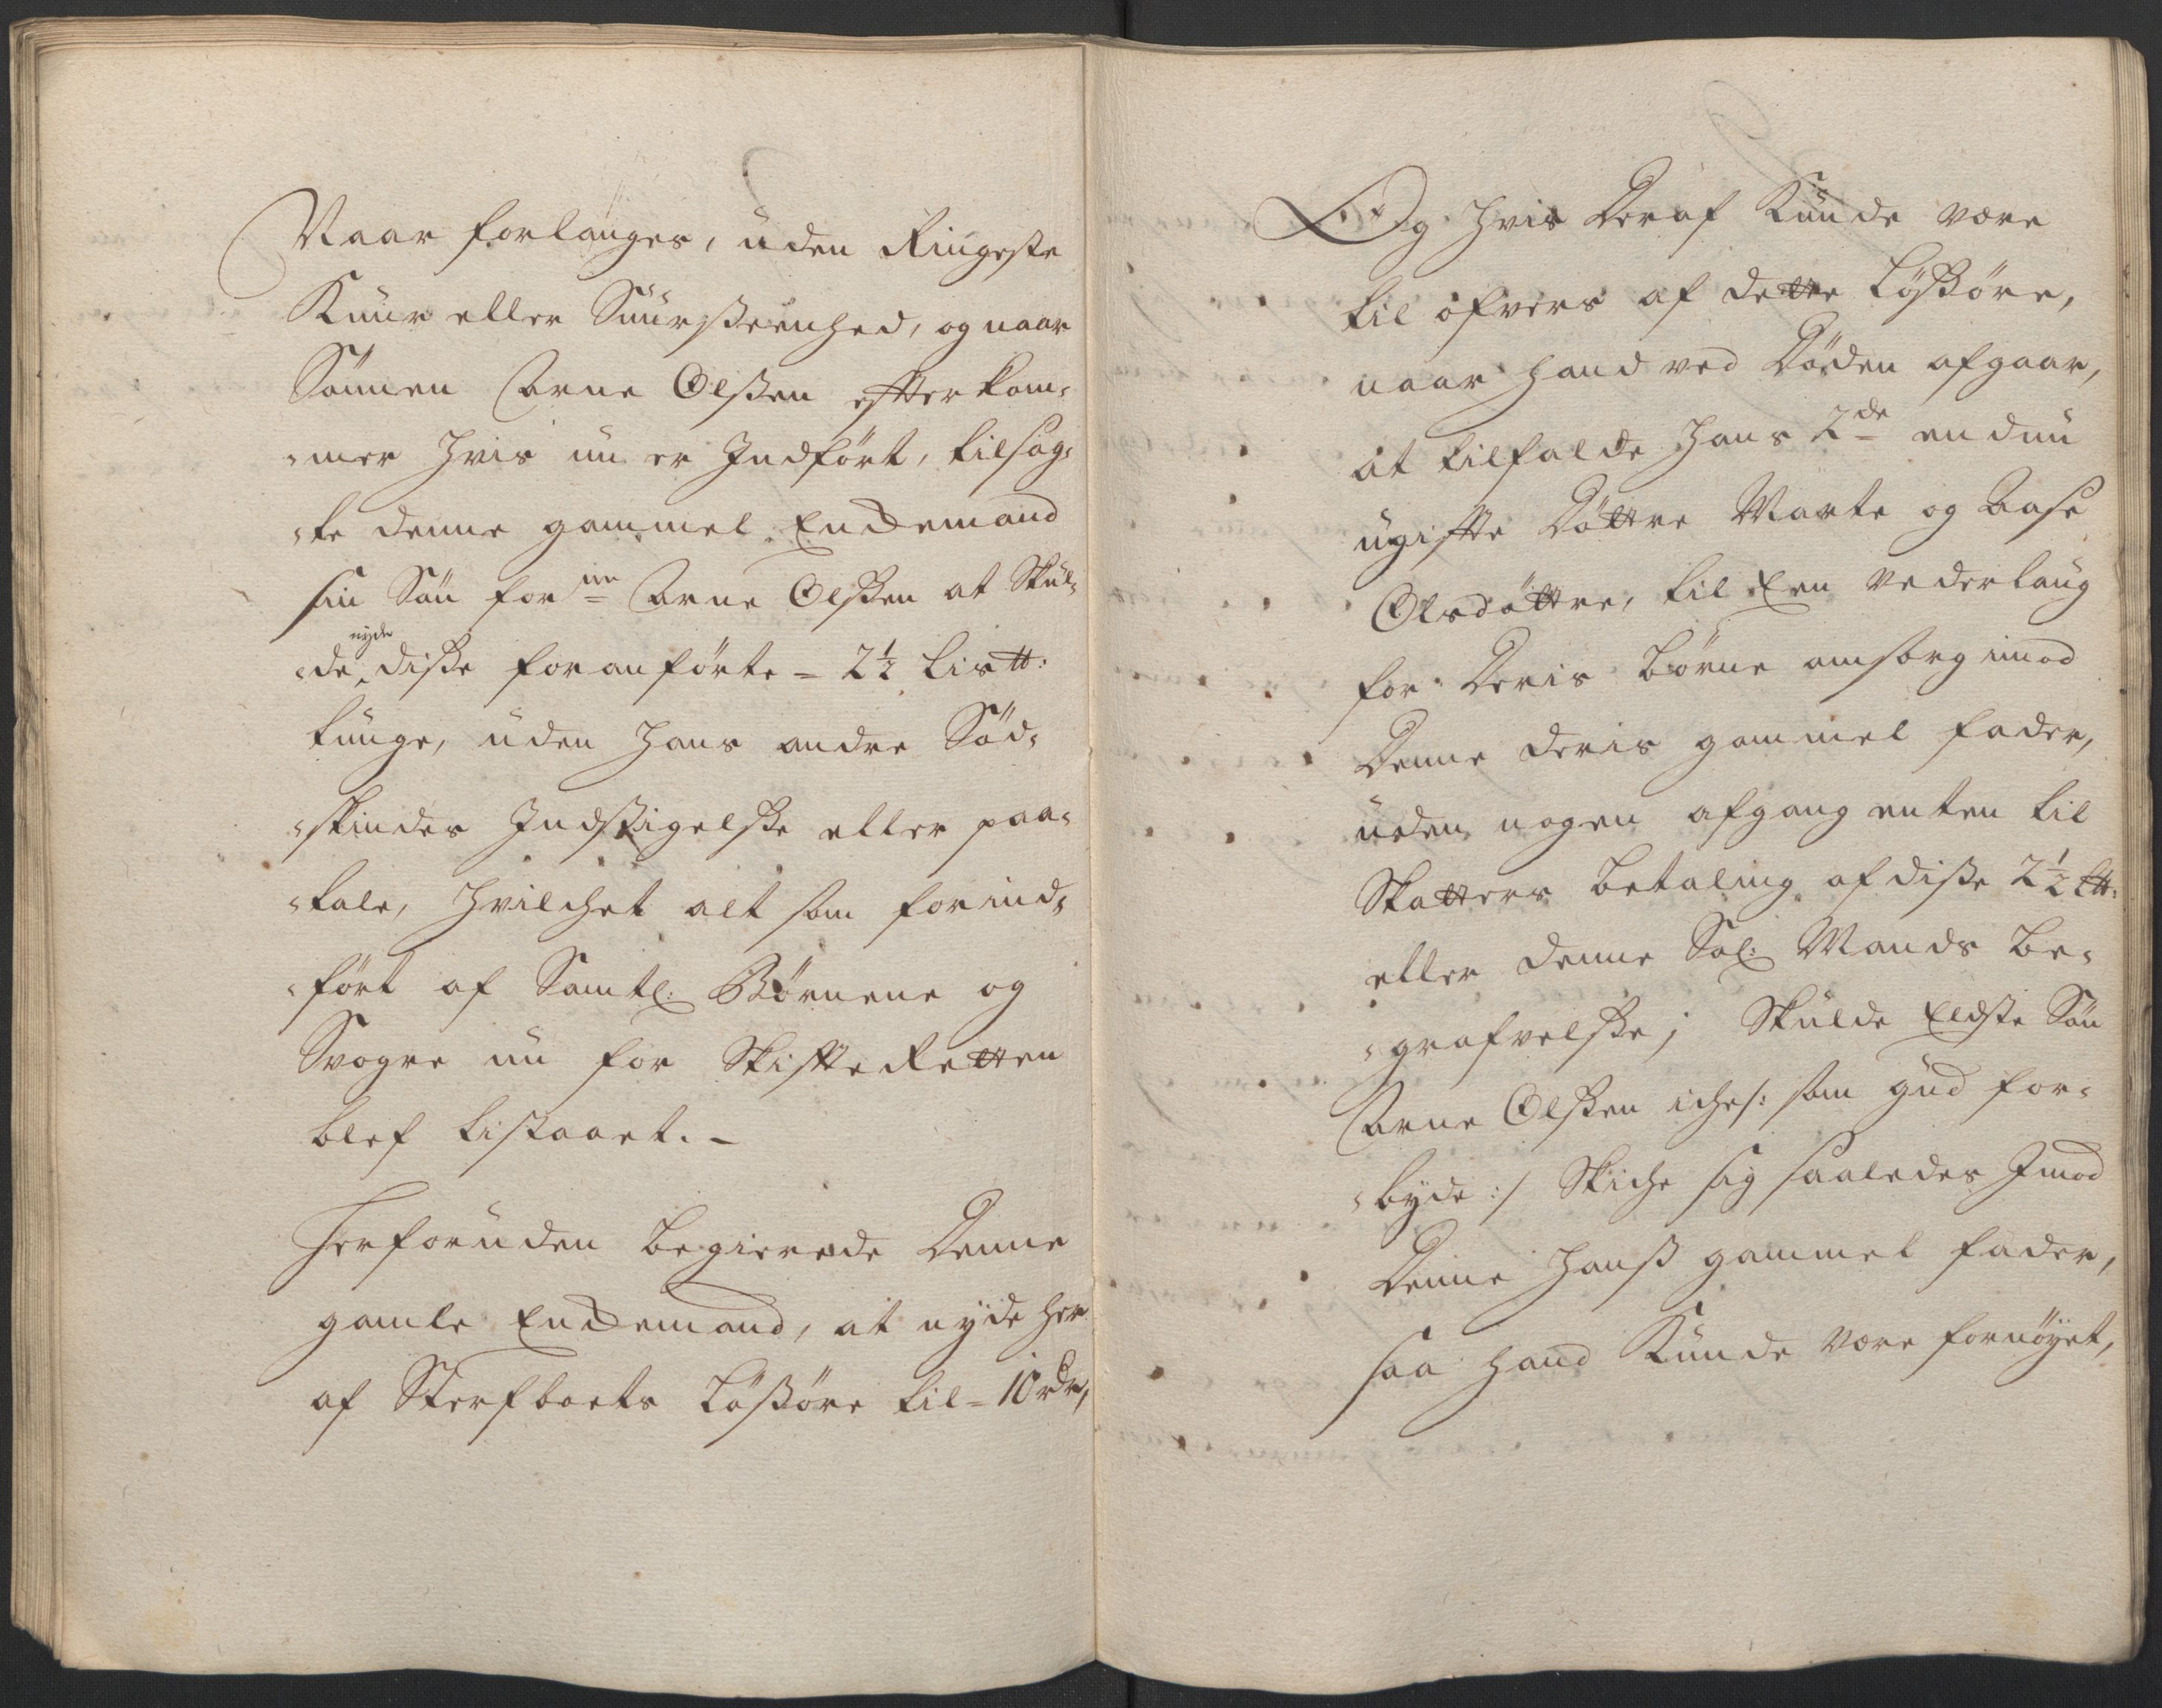 Naar forlanges, uden Ringeste
Knur eller Suurseenhed, og naar
Sönnen Arne Olßen efterkom¬
mer hvis nu er Indfört, tilsag¬
te denne gammel Enckemand
sin Sön for nn Arne Olßen at Skul¬
de nyde diße foranförte = 2½ Lis ℔:
tunge, uden hans andre Söd¬
skindes Indsigelße eller paa¬
tale, hvilchet alt som forind¬
fört af Samtl: Börnene og
Svogre nu for Skifte Retten
blef tistaaet. -
Herforuden begierede Denne
gamle Enckemand, at nyde her
af Sterfboets Lößöre til = 10 rdr,
Og hvis Deraf Kunde være
til ofvers af dette Lößöre,
naar hand ved Döden afgaar,
at tilfalde hans 2de endnu
ugifte Döttre Marte og Aase
Olsdöttre, til Een Vederlaug
for Deris börne omsorg imod
Denne deris gammel fader,
uden nogen afgang enten til
Skatters betaling af diße 2½ L℔:
eller denne Sal: Mands be¬
grafvelße; Skulde Eldste Sön
Arne Olßen iche /: som gud for¬
byde :/ Skiche sig saaledes Imod
Denne hanß gammel fader,
saa hand Kunde være fornöyet,